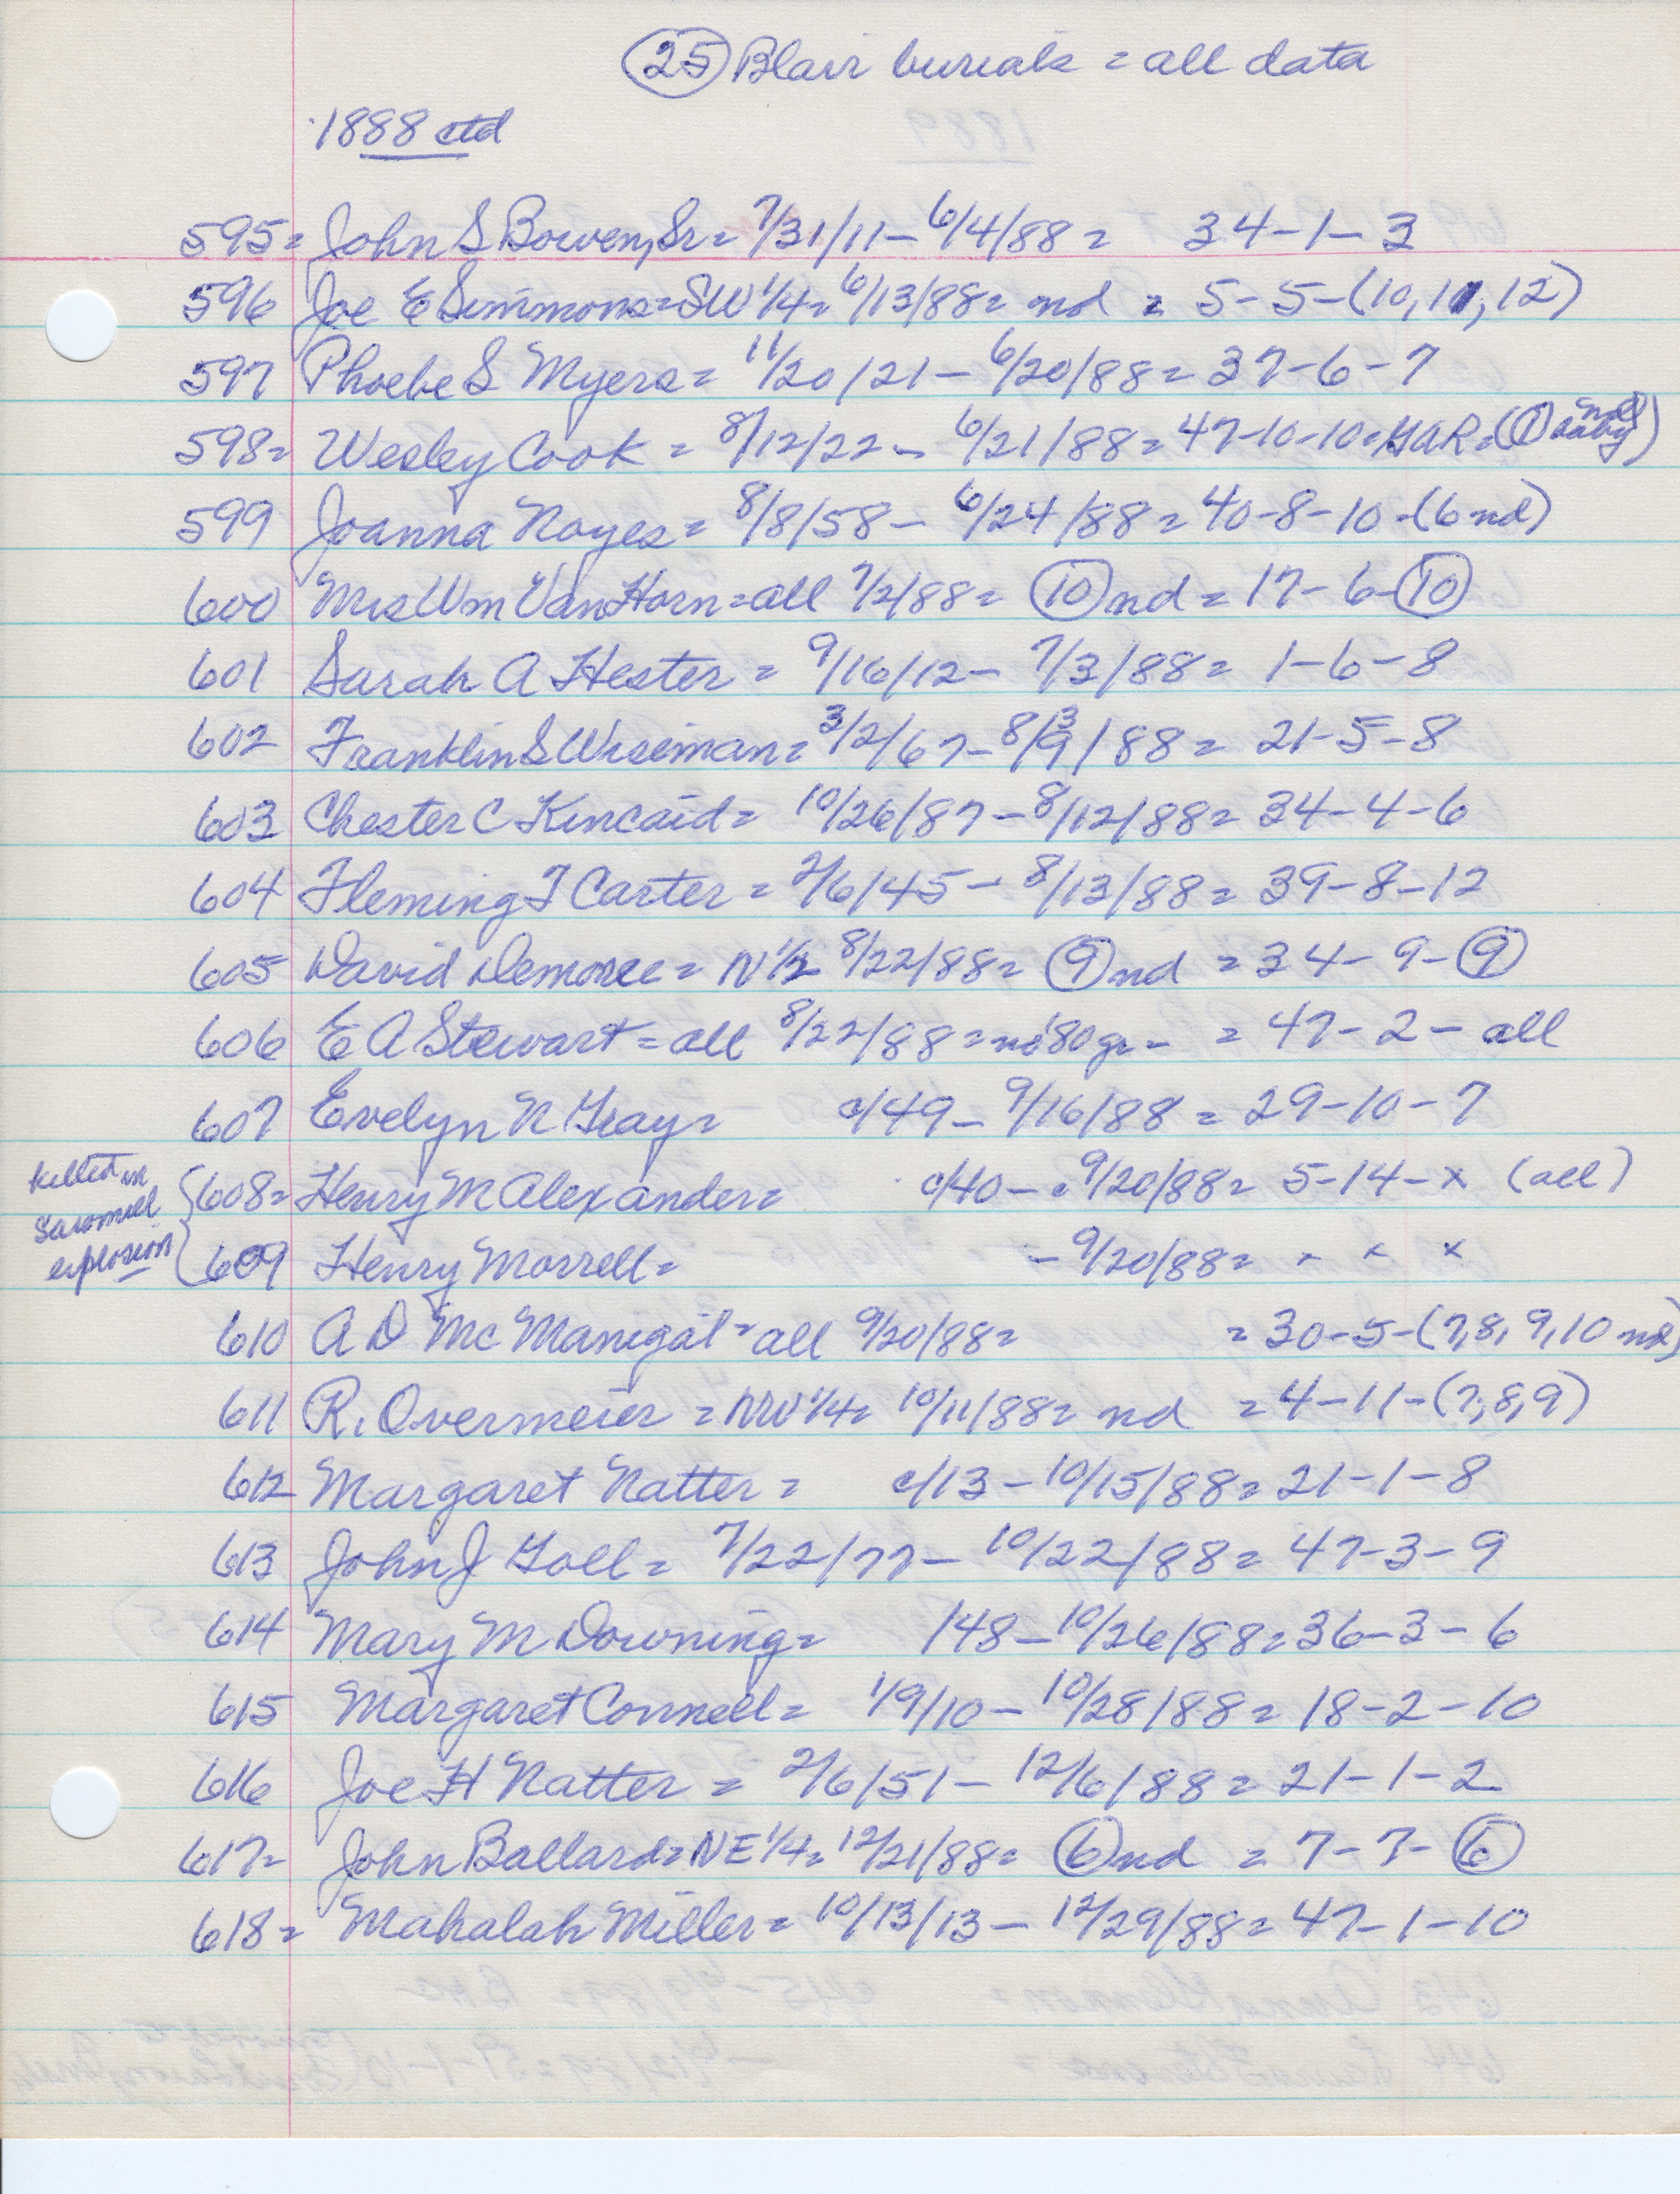 (25) Blair burials = all data
1888 ctd
595= John S Bowen, Sr = 7/31/11 - 6/4/88 = 34-1-3
596 Joe E Simmons = SW 1/4 = 6/13/88 = nd = 5-5-(10, 11, 12)
597 Phoebe S Myers = 11/20/21 - 6/20/88 = 37-6-7
598= Wesley Cook = 8/12/22 - 6/21/88 = 47-10-10 = GAR = (1 small baby)
599 Joanna Noyes = 8/8/58 - 6/24/88 = 40-8-10 - (6 nd)
600 Mrs Wm Van Horn = all 7/2/88 = (10) nd = 17-6-(10)
601 Sarah A Hester = 9/16/12 - 7/3/88 = 1-6-8
602 Franklin S Wiseman = 3/2/67 - 8/3/9/88 = 21-5-8
603 Chester C Kincaid = 10/26/87 - 8/12/88 = 34-4-6
604 Fleming T Carter = 2/6/45 - 8/13/88 = 39-8-12
605 David Demoree = N 1/2 8/22/88 = (9) nd = 34-9-(9)
606 E A Stewart = all 8/22/88 = no '80 gr - = 47-2-all
607 Evelyn N Gray = c/49 - 9/16/88 = 29-10-7
killed in sawmill explosion { 608= Henry M Alexander = c/40 - 9/20/88 = 5-14-x (all)
609 Henry Morrell = - 9/20/88 = x x x
610 A D McManigal = all 9/20/88 = = 30-5-(7, 8, 9, 10 nd)
611 R. Overmeier = NW 1/4 = 10/11/88 = nd = 4-11-(7, 8, 9)
612 Margaret Natter = c/13 - 10/15/88 = 21-1-8
613 John J Goll = 7/22/77 - 10/22/88 = 47-3-9
614 Mary M Downing = /48 - 10/26/88 = 36-3-6
615 Margaret Connell = 1/9/10 - 10/28/88 = 18-2-10
616 Joe H Natter = 2/6/51 - 12/6/88 = 21-1-2
617= John Ballard = NE 1/4 = 12/21/88 = (6) nd = 7-7-(6)
618= Mahalah Miller = 10/13/13 - 12/29/88 = 47-1-10